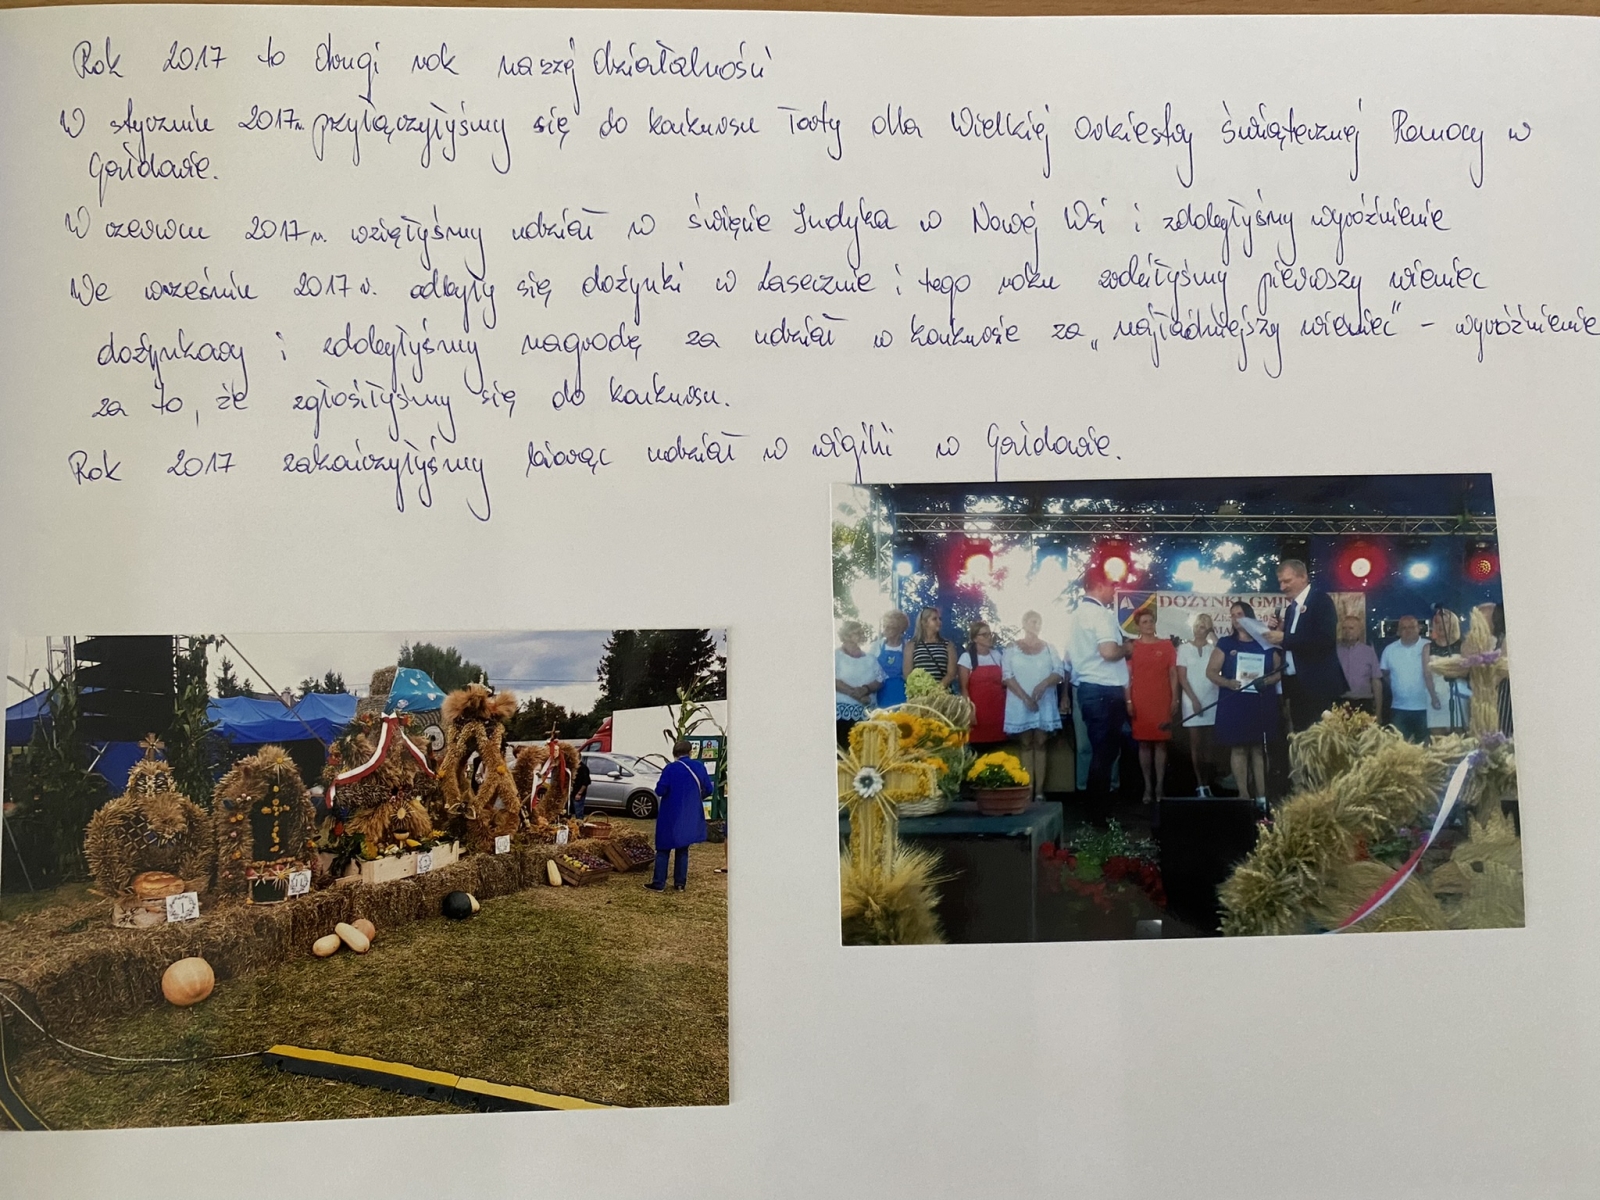 Rok 2017 to drugi rok naszej działalności
W styczniu 2017r. przyłączyłyśmy się do konkursu Torty dla Wielkiej Orkiestry Świątecznej Pomocy w
W czerwcu 2017r. wzięłyśmy udział w święcie Indyka w Nowej Wsi i zdobyłyśmy wyróżnienie
We wrześniu 2017r. odbyły się dożynki w Lasecznie i tego roku zrobiłyśmy pierwszy wieniec
dożynkowy i zdobyłyśmy nagrodę za udział w konkursie za „najładniejszy wieniec" - wyróżnienie
za to, że zgłosiłyśmy się do konkursu.
Rok 2017 zakończyłyśmy biorąc udział w wigilii w
DOŻYNKI GMIN